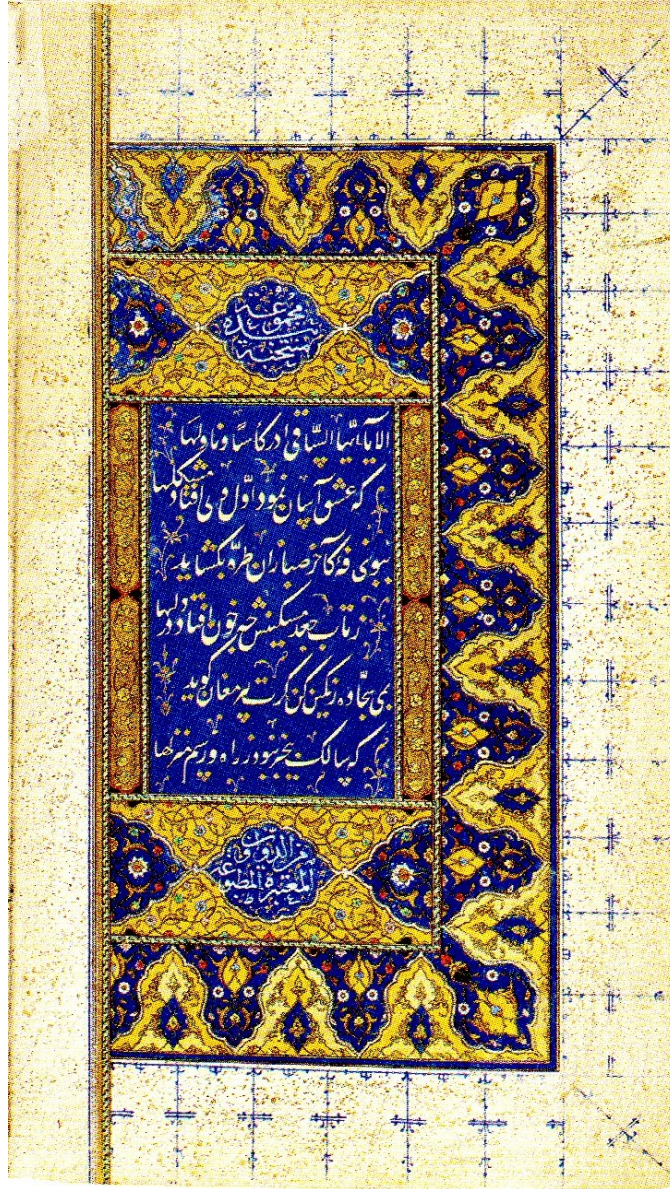 مجموعة
الا یا ایّها السّاقی ادر کاسًا و ناولها
که عشق آسان نمود اوّل ولی افتاد مشکلها
ببوی نافه کآخر صبا زان طرّه بگشاید
ز تاب جعد مشکینش چه خون افتاد در دلها
بمی سجّاده رنگین کن گرت پیر مغان گوید
که سالک بیخبر نبود ز راه و رسم منزلها
من الدواوین
المعتبرة المطبوعة